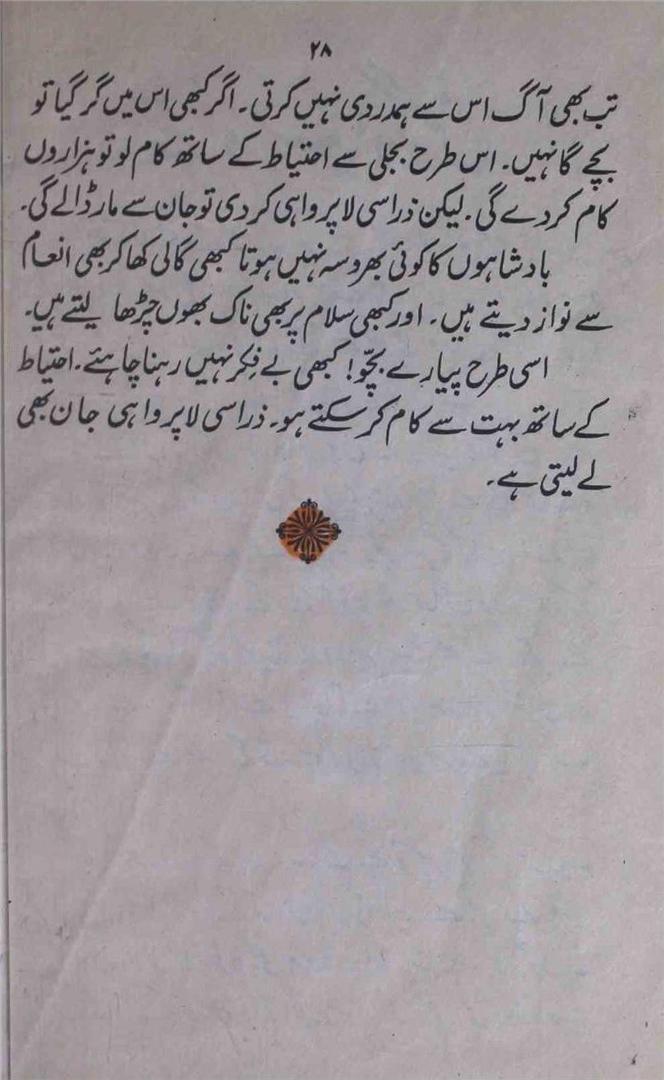 ۲۸
تب بھی آگ اس سے ہمدردی نہیں کرتی۔ اگر کبھی اس میں گر گیا تو
بچے گا نہیں۔ اس طرح بجلی سے احتیاط کے ساتھ کام لو تو ہزاروں
کام کر دے گی۔ لیکن ذرا سی لاپرواہی کر دی تو جان سے مار ڈالے گی۔
بادشاہوں کا کوئی بھروسہ نہیں ہوتا کبھی گالی کھا کر بھی انعام
سے نواز دیتے ہیں۔ اور کبھی سلام پر بھی ناک بھوں چڑھا لیتے ہیں۔
اسی طرح پیارے بچّو! کبھی بے فکر نہیں رہنا چاہئے۔ احتیاط
کے ساتھ بہت سے کام کر سکتے ہو۔ ذرا سی لاپرواہی جان بھی
لے لیتی ہے۔